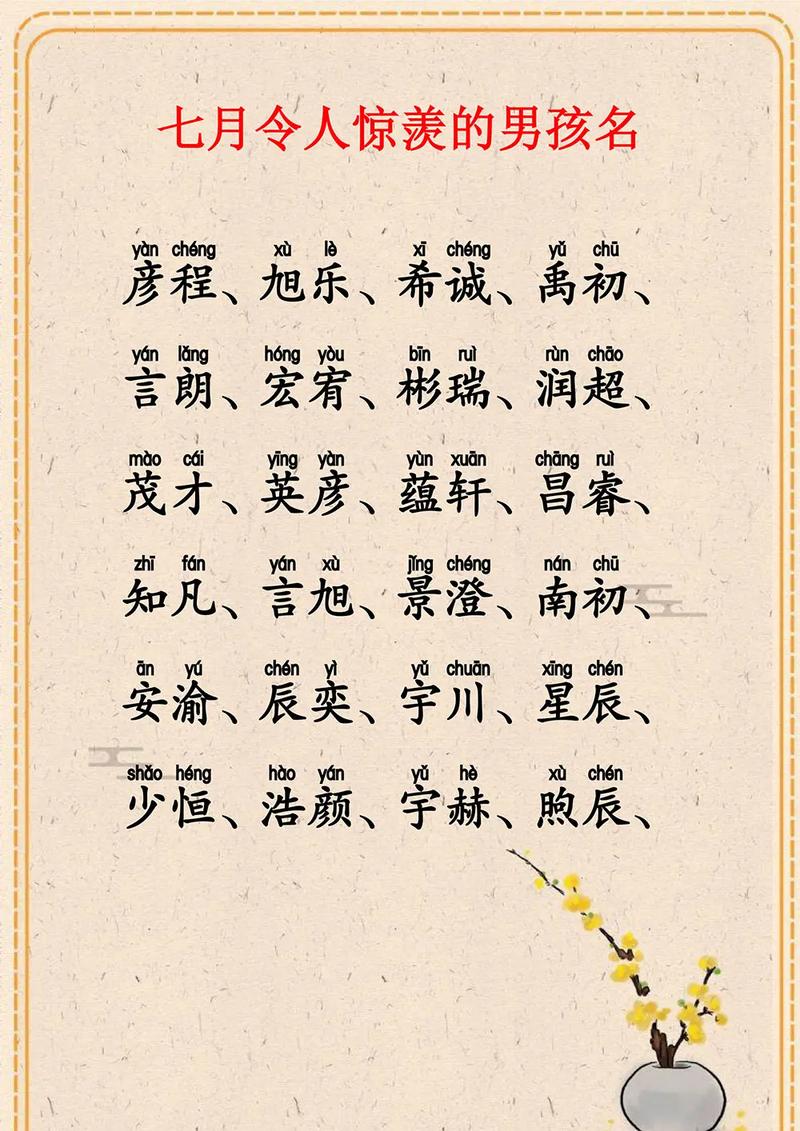 七月令人惊羡的男孩名
yàn chéng xù lè xī chéng yǔ chū
彦程、旭乐、希诚、禹初、
yán lǎng hóng yòu bīn ruì rùn chāo
言朗、宏宥、彬瑞、润超、
mào cái yīng yàn yùn xuān chāng ruì
茂才、英彦、蕴轩、昌睿、
zhī fán yán xù jǐng chéng nán chū
知凡、言旭、景澄、南初、
ān yú chén yì yǔ chuān xīng chén
安渝、辰奕、宇川、星辰、
shǎo héng hào yán yǔ hè xù chén
少恒、浩颜、宇赫、煦辰、